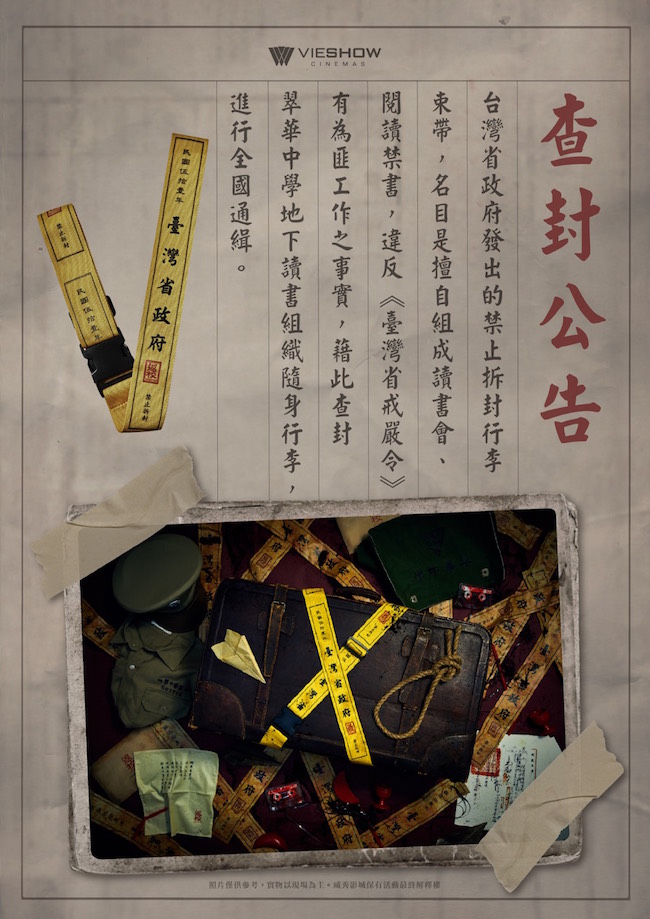 VIESHOW
CINEMAS
查封公告
台灣省政府發出的禁止拆封行李
束帶，名目是擅自組成讀書會、
閱讀禁書，違反《臺灣省戒嚴令》
有為匪工作之事實，藉此查封
翠華中學地下讀書組織隨身行李，
進行全國通緝。
民國伍拾壹年
臺灣省政府
禁止拆封
禁止拆封
民國伍拾壹年
臺灣省政府
灣省
照片僅供參考，實物以現場為主。威秀影城保有活動最終解釋權